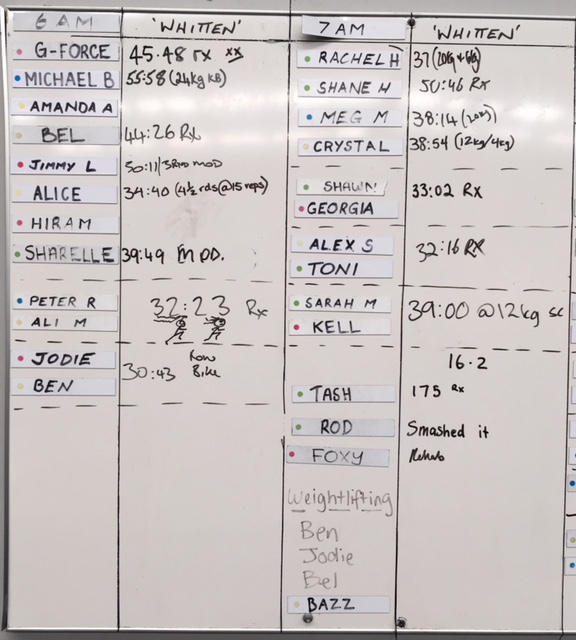 6 AM 'WHITTEN'
G-FORCE 45:48 rx xx
MICHAEL B 55:58 (24kg KB)
AMANDA A
BEL 44:26 Rx
JIMMY L 50:11/3RD MOD
ALICE 34:40 (4½ rds @ 15 reps)
HIRAM
SHARELLE 39:49 MOD.
PETER R 32:23 Rx
ALI M
JODIE 30:43 Row
BEN Bike
7 AM 'WHITTEN'
RACHEL H 37
SHANE H 50:46 Rx
MEG M 38:14 (20kg)
CRYSTAL 38:54 (12kg/4kg)
SHAWN 33:02 Rx
GEORGIA
ALEX S 32:16 RX
TONI
SARAH M 39:00 @12kg sc
KELL
16.2
TASH 175 Rx
ROD Smashed it
FOXY Rehab
Weightlifting
Ben
Jodie
Bel
BAZZ